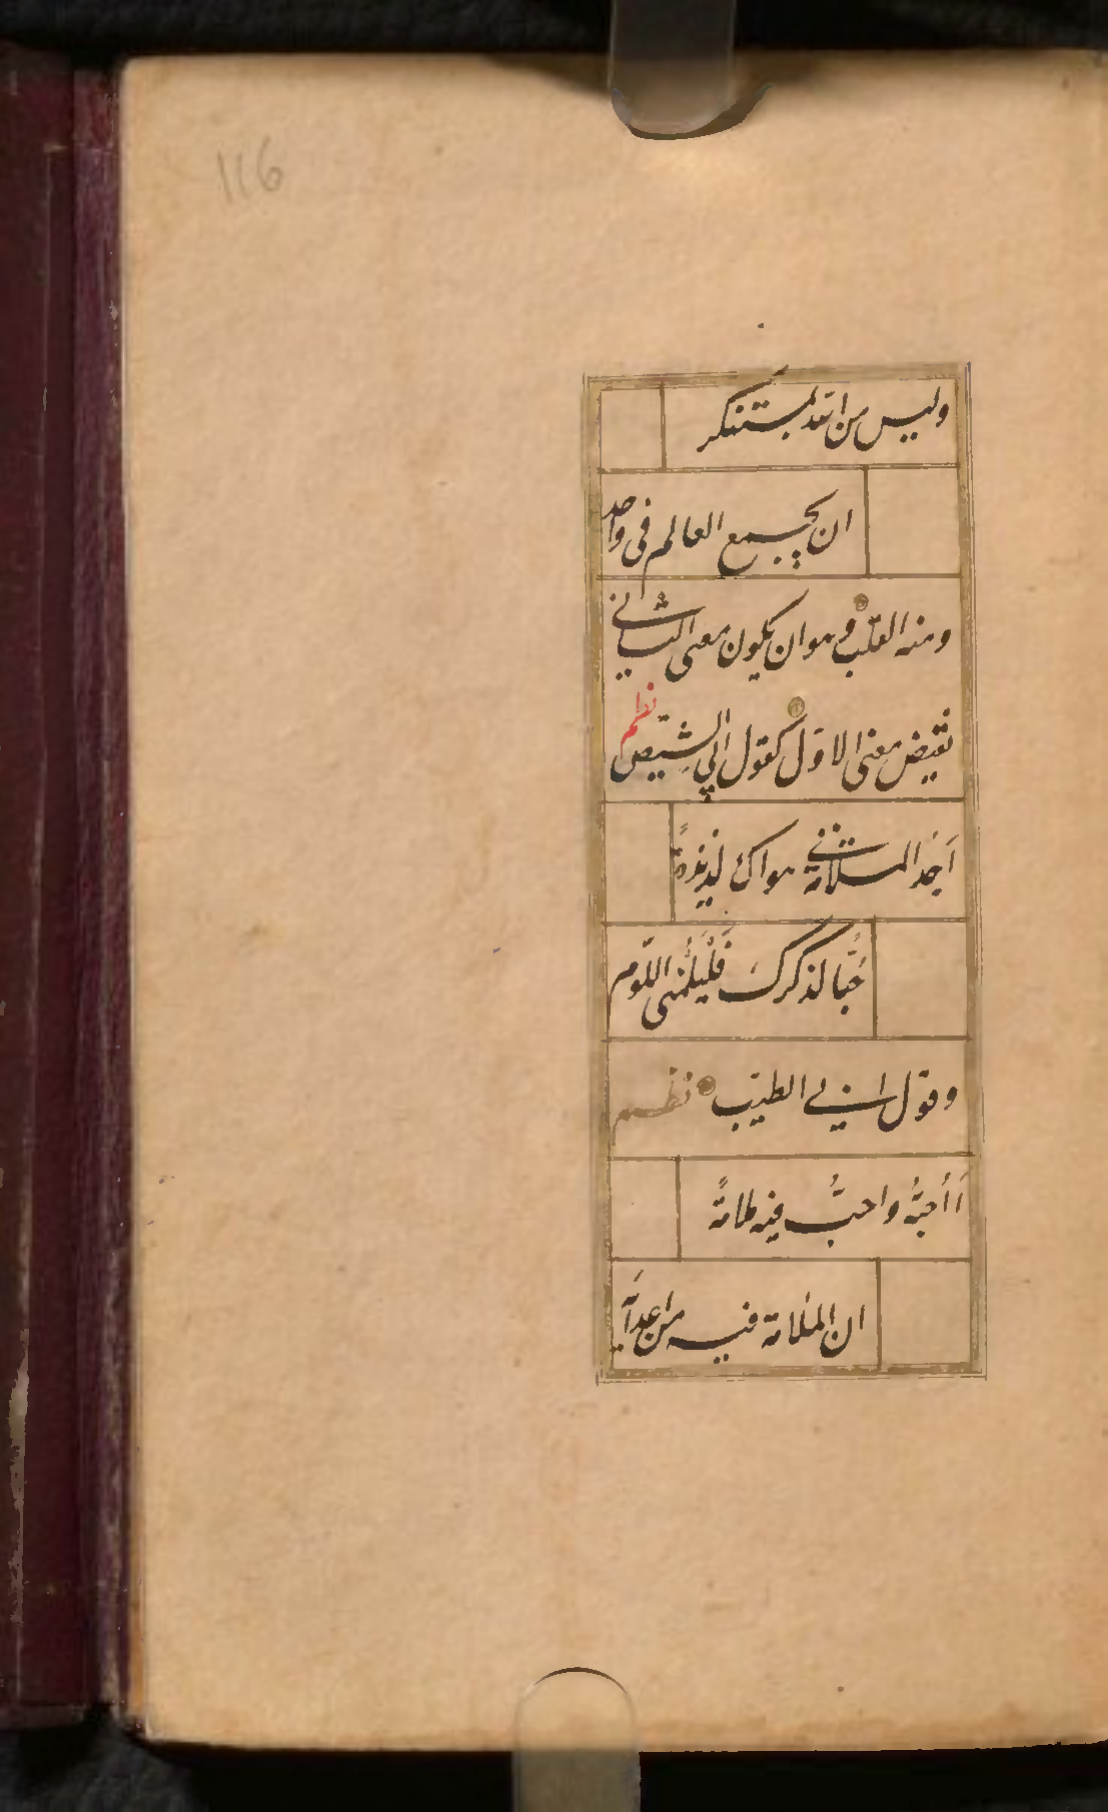 116
وليس من الله بمستنكر
ان يجمع العالم فى واحد
ومنه القلب وهوان يكون معنى البيت الثانى
نقيض معنى الاوّل كقول ابي الشيص نظم
اَجد الملامة فى هواك لذيذةً
حُبًّا لذكركَ فَلْيَلُمْنى اللوّم
وقول ابى الطيّب نظم
اَاُحبُّهُ واحبُّ فيه ملامةً
ان الملامة فيه من اعدآئه